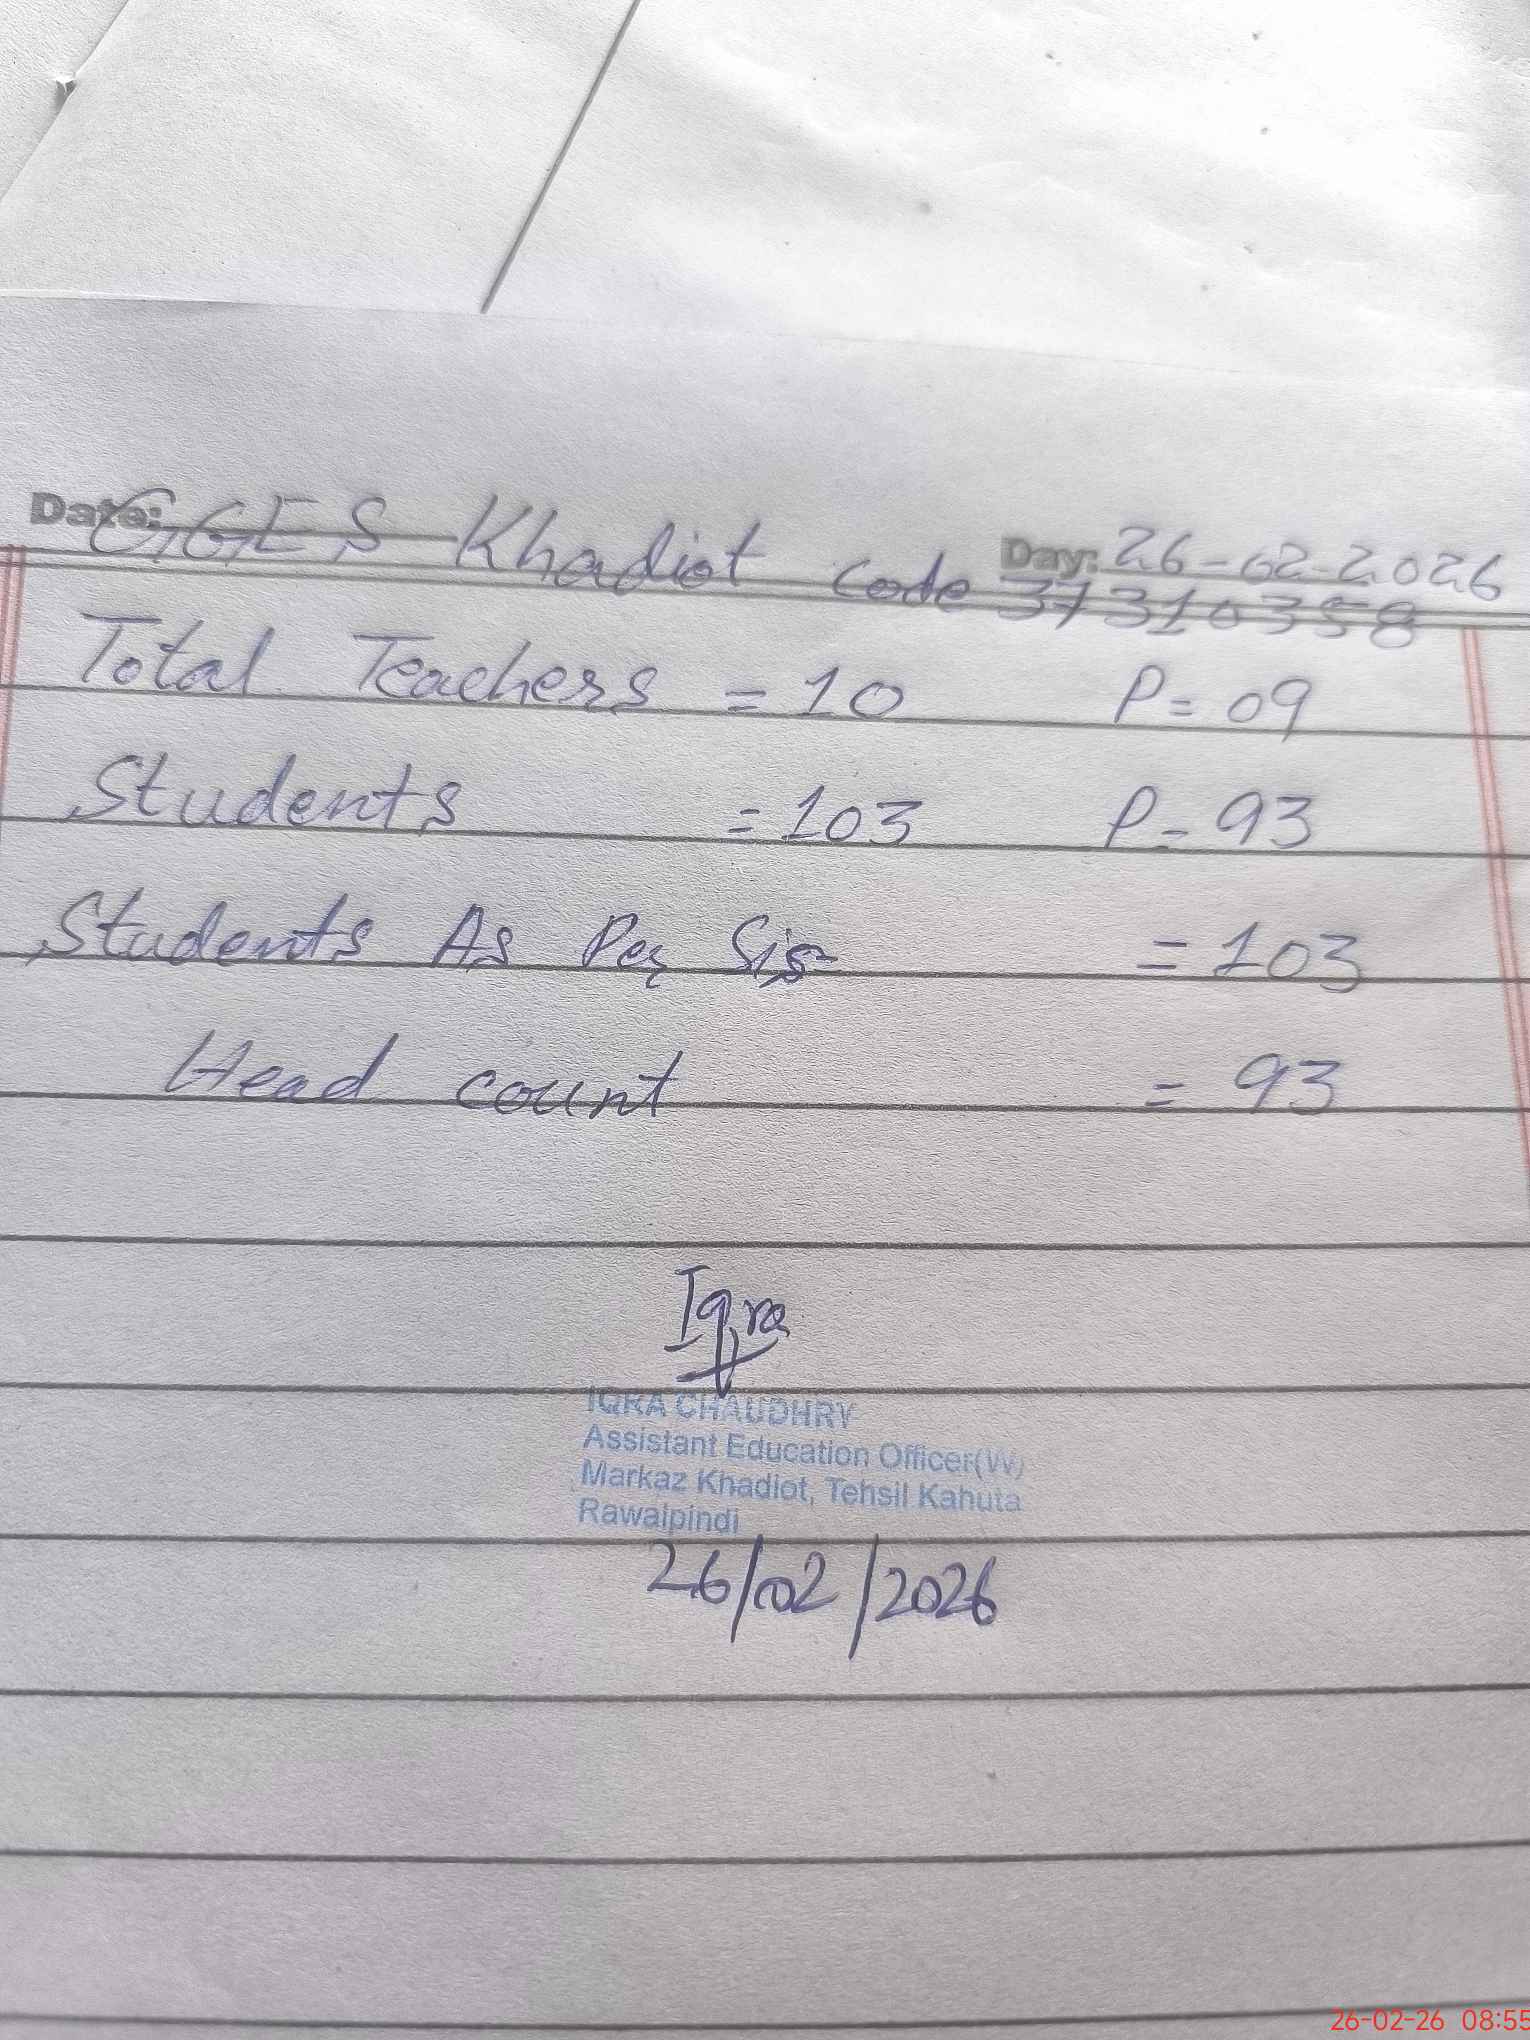 Date: GGES Khadiot code Day: 26-02-2026
37310358
Total Teachers = 10 P= 09
Students = 103 P- 93
Students As Per Sis = 103
Head count = 93
Iqra
IQRA CHAUDHRY
Assistant Education Officer(W)
Markaz Khadiot, Tehsil Kahuta
Rawalpindi
26/02/2026
26-02-26 08:55